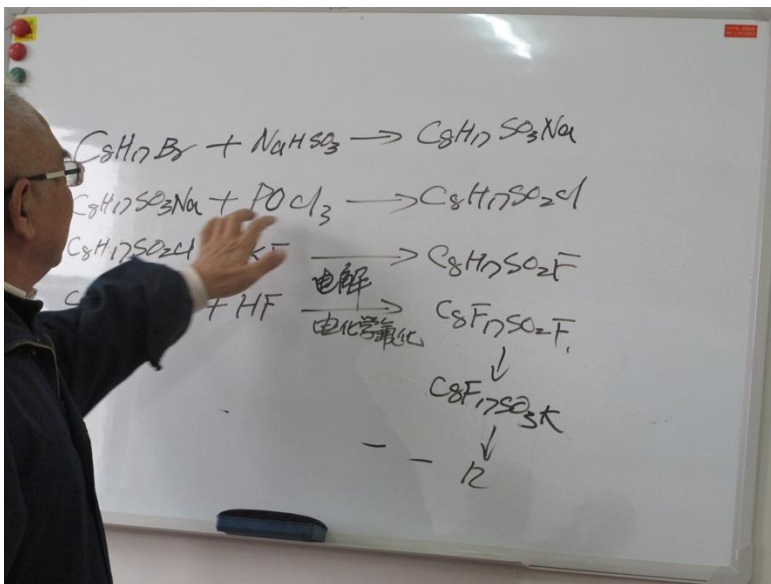 C8H17Br + NaHSO3 → C8H17SO3Na
C8H17SO3Na + POCl3 → C8H17SO2Cl
C8H17SO2Cl KF → C8H17SO2F
+ HF 电解 → C8F17SO2F.
电化学氟化
↓
C8F17SO3K
↓